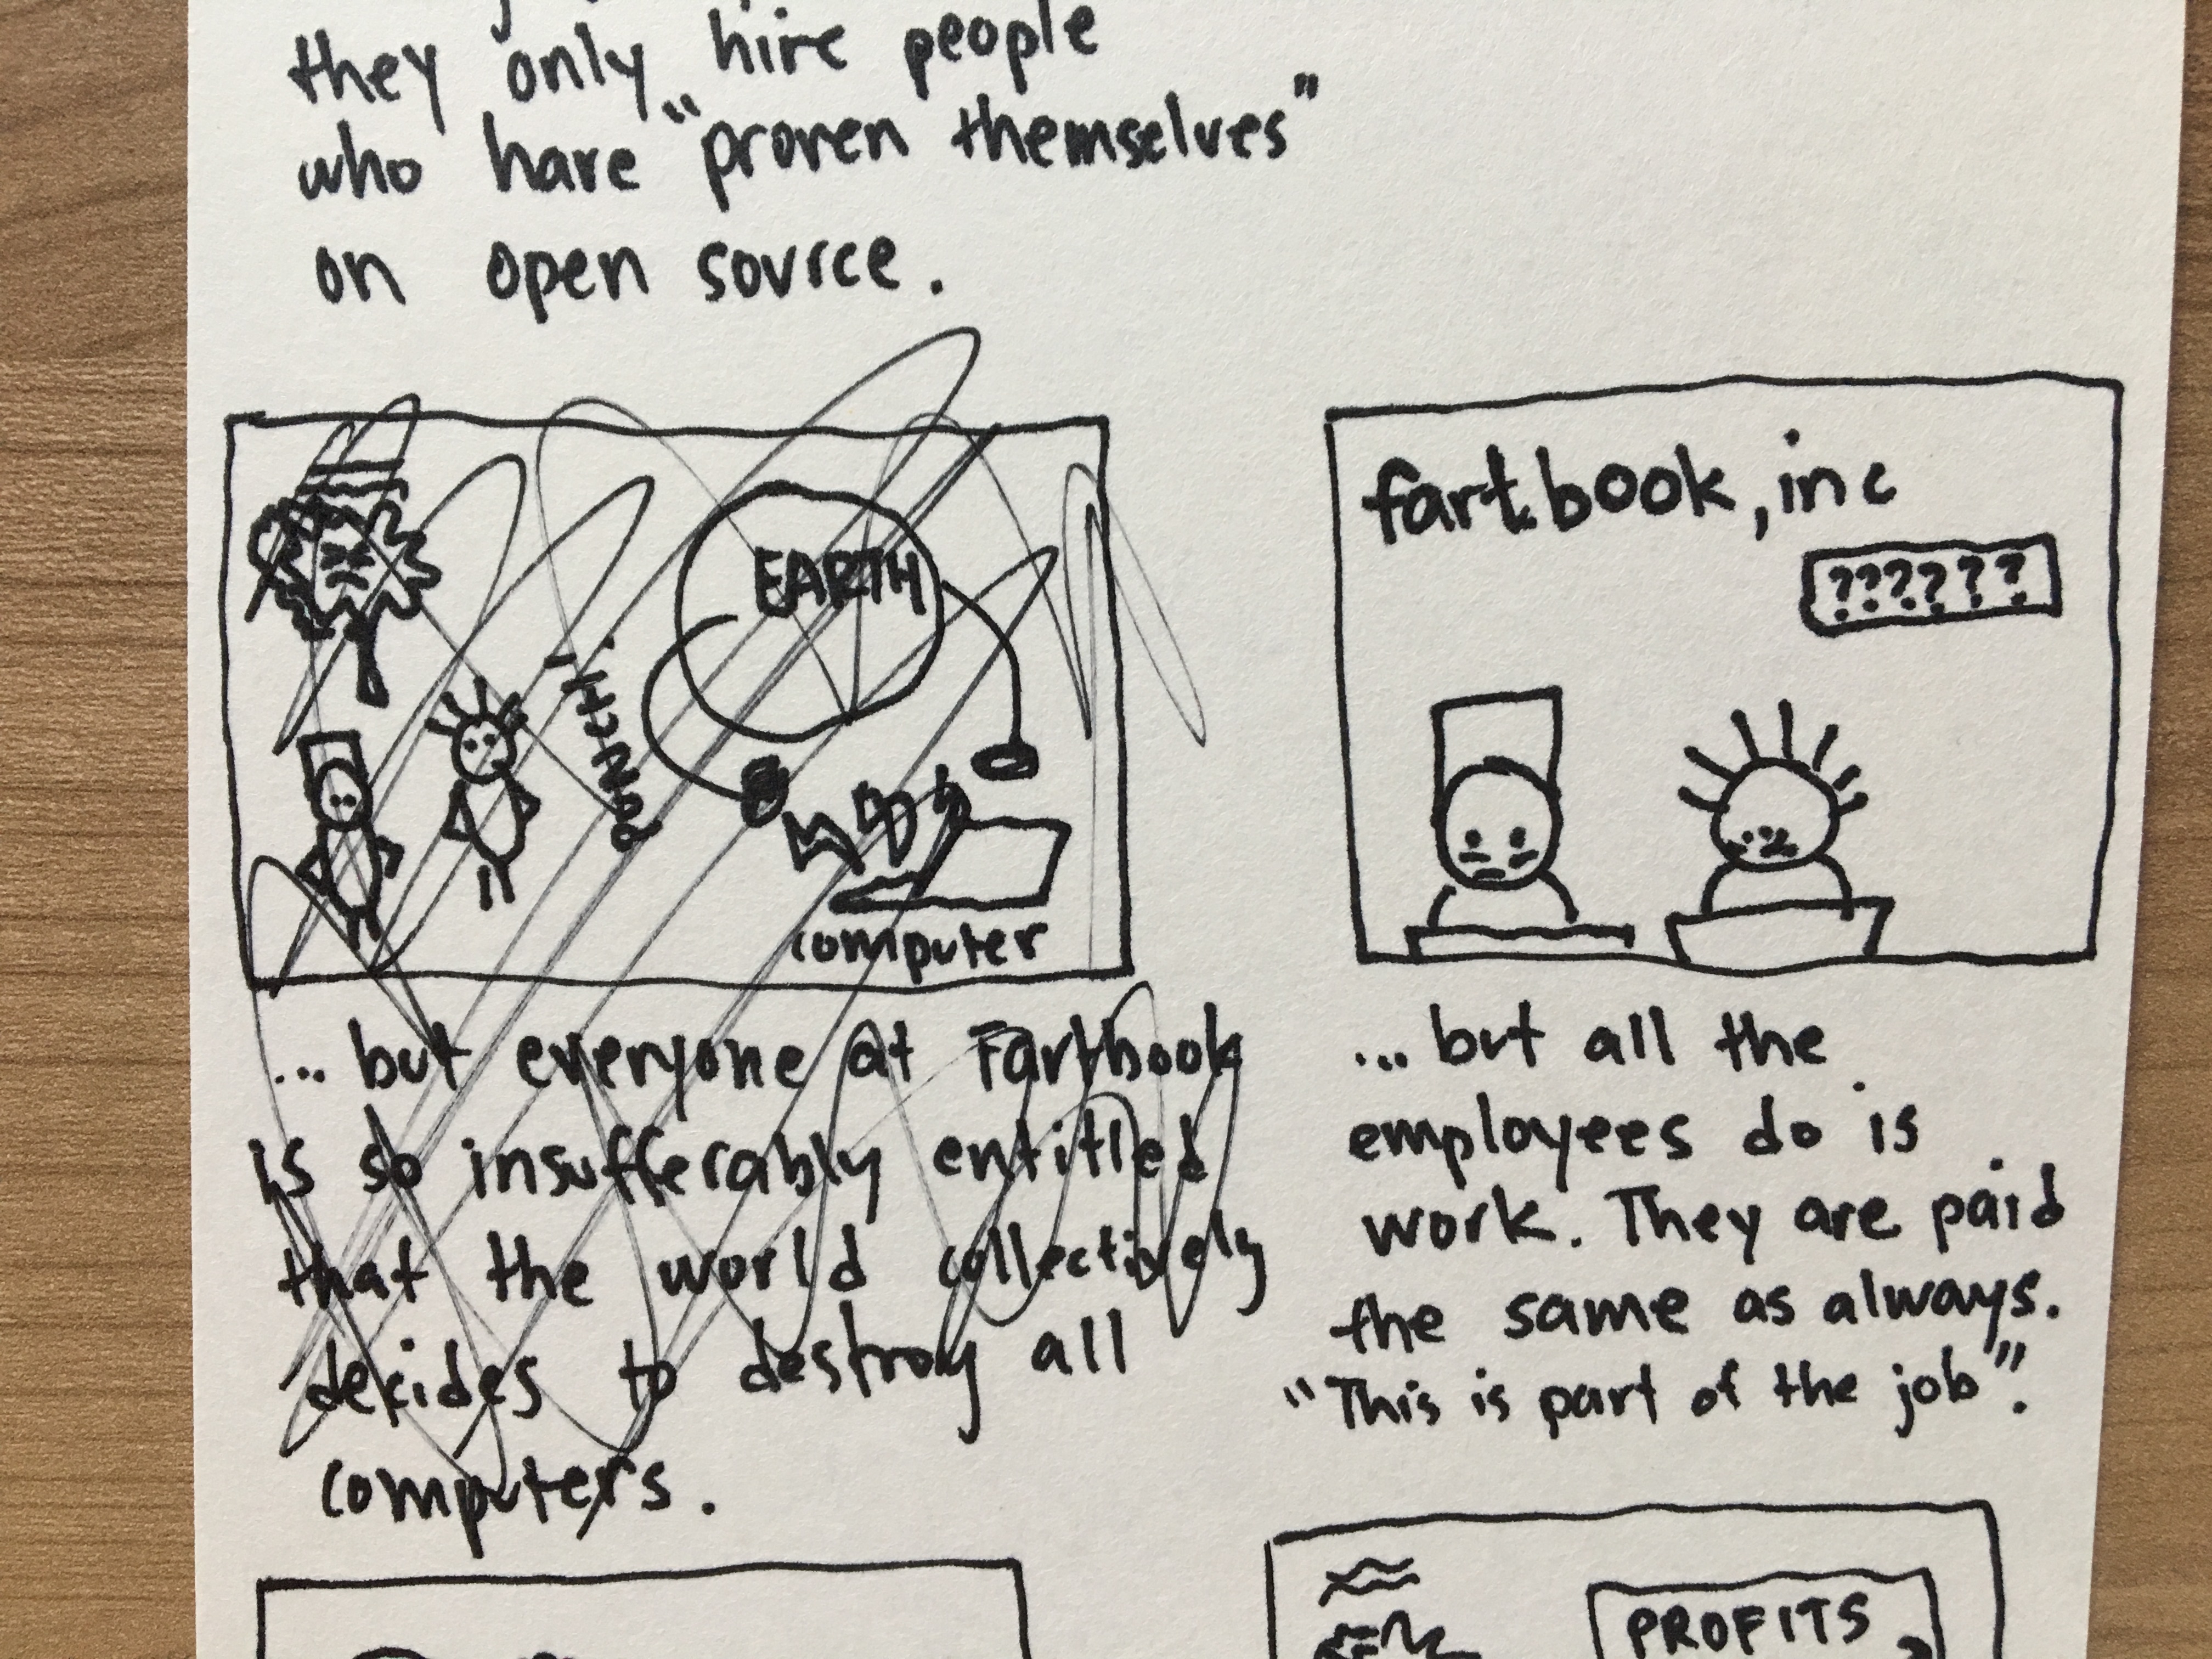 they only hire people
who have "proven themselves"
on open source.
EARTH
PUNCH!!
computer
... but everyone at Fartbook
is so insufferably entitled
that the world collectively
decides to destroy all
computers.
fartbook, inc
??????
... but all the
employees do is
work. They are paid
the same as always.
"This is part of the job".
PROFITS